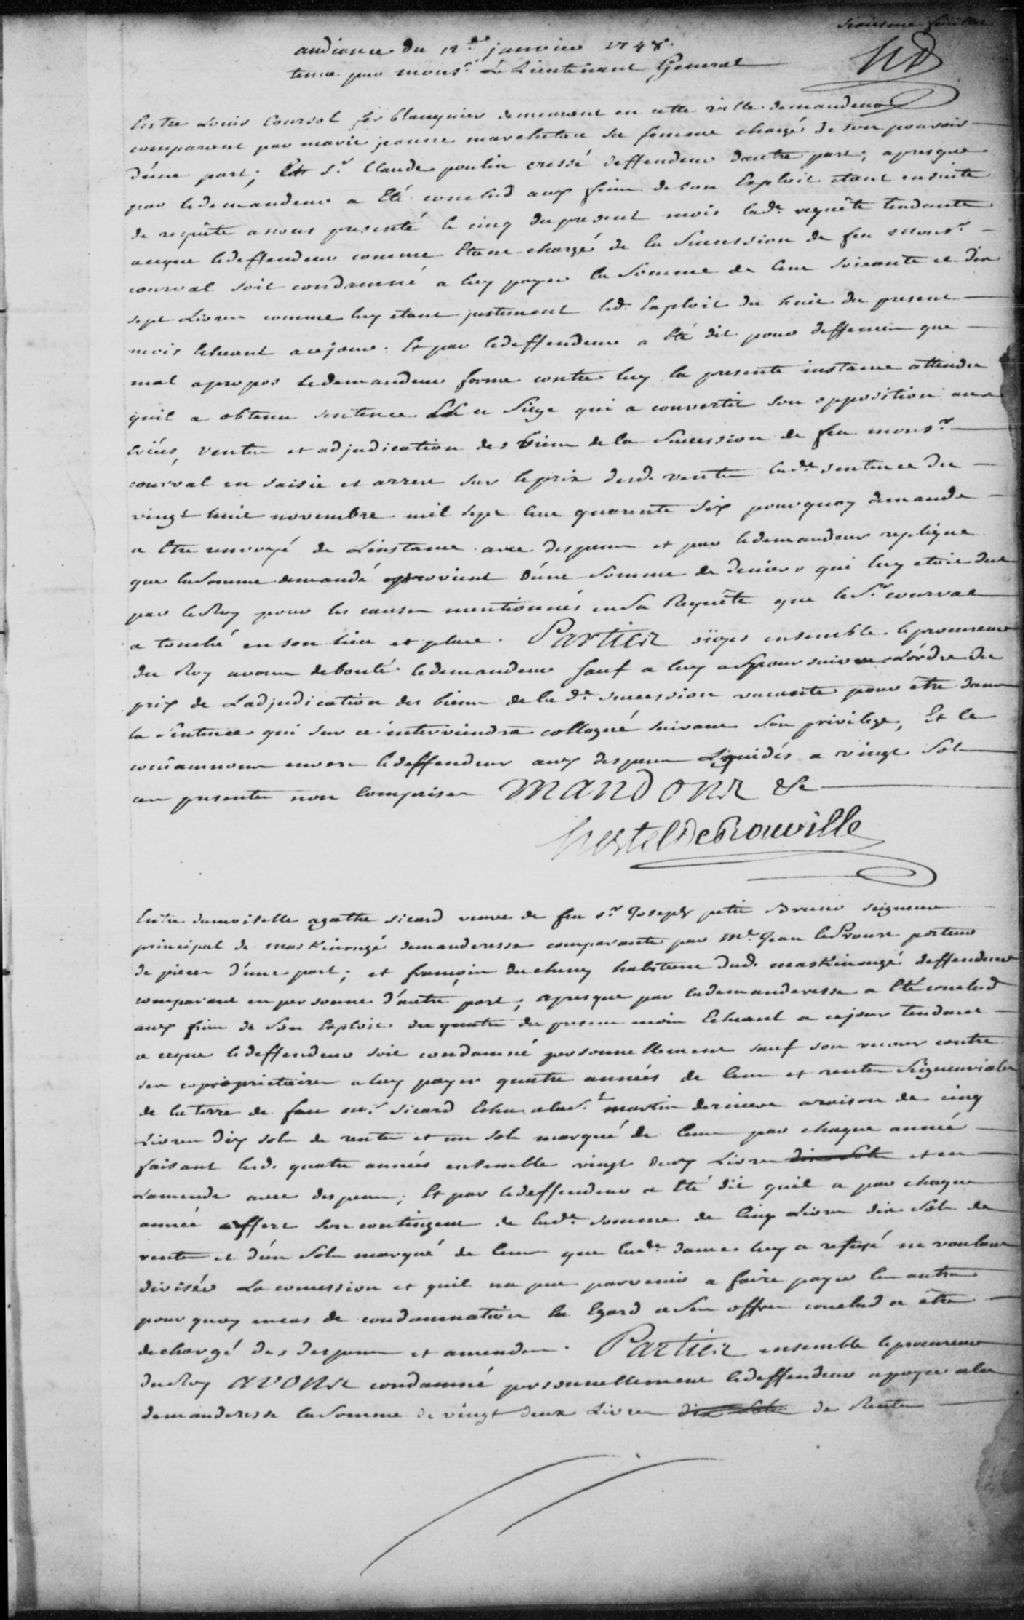 Sixiesme feuillet
audiance du 12.e janvier 1748.
tenue par mons.r Le Lieutenant General
HD
Entre Louis Coursol ferblanquier demeurant en cette ville demandeur
comparant par marie jeanne sa femme chargé de son pouvoir
d'une part; Et S.r Claude poulin cressé deffendeur d'autre part; apresque
par ledemandeur a Eté conclud aux fins de son Exploit étant ensuite
de requête anous presenté le cinq du present mois lad.e requête tendante
aceque ledeffendeur comme Etant chargé de la Succession de feu mons.r
courval soit condamné a luy payer la Somme de Cent soixante et dix
sept Livres comme luy etant justement led. Exploit du huit du present
mois Echeant acejour. Et par ledeffendeur a Eté dit pour deffenses que
mal apropos ledemandeur forme contre luy la presente instance attendu
quil a obtenu sentence En ce Siege qui a convertie son opposition aux
criées, ventes et adjudication des biens de la Succession de feu mons.r
courval en saisie et arrest sur leprix desd. ventes lad.e sentence du
vingt huit novembre mil sept cent quarente Six pourquoy demande
a Etre renvoyé de Linstance avec depens et par ledemandeur repliqué
que lasomme demandé provient d'une Somme de deniers qui luy etoit due
par leRoy pour les causes mentionnées en sa Requête que leS.r courval
a touché en son lieu et place. Parties oüyes ensemble leprocureur
du Roy avons debouté ledemandeur sauf a luy a poursuivre Lordre du
prix de Ladjudication des biens de la d.e succession vacante pour être dans
la Sentence qui sur ce interviendra colloqué suivant son privilege, Et le
condamnons envers ledeffendeur aux depens Liquidés a vingt Sols
ces presentes non Comprises Mandons &c
Hertel De Rouville
Entre demoiselle agathe sicard veuve de feu s.r Joseph petit Bruno seigneur
principal de maskinongé demanderesse comparante par M.e Jean leProust porteur
de pieces d'une part; et françois ducheny habitant dud. maskinongé deffendeur
comparant en personne d'autre part; apresque par lademanderesse a Eté conclud
aux fins de son Exploit du quatre du present mois Echeant a cejour tendant
a ceque ledeffendeur soit condamné personnellement sauf son recours contre
ses coproprietaires a luy payer quatre années de Cens et rentes Seigneuriales
de laterre de feu m.r Sicard Echu alas.t martin derniere araison de cinq
Livres dix sols de rente et un sol marqué de Cens par chaque année
faisant lesd. quatre années ensemble vingt deux Livres dix Sols et en
Lamende avec depens; Et par ledeffendeur a Eté dit quil a par chaque
année offert son contingent de lad.e somme de Cinq Livres dix Sols de
rente et d'un Sol marqué de Cens que lad.e dame luy a refusé ne voulant
divisée La concession et quil na pue parvenir a faire payer les autres
pour quoy encas de condamnation la Egard a Son offre conclud a être
dechargé des depens et amende. Parties ensemble leprocureur
du Roy avons condamné personnellement ledeffendeur apayer ala
demanderesse lasomme de vingt deux Livres dix Sols de Rente